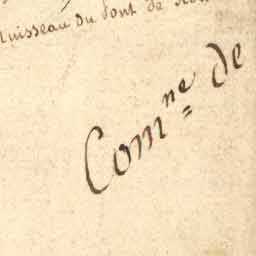 Ruisseau du Pont de
Com.ne de